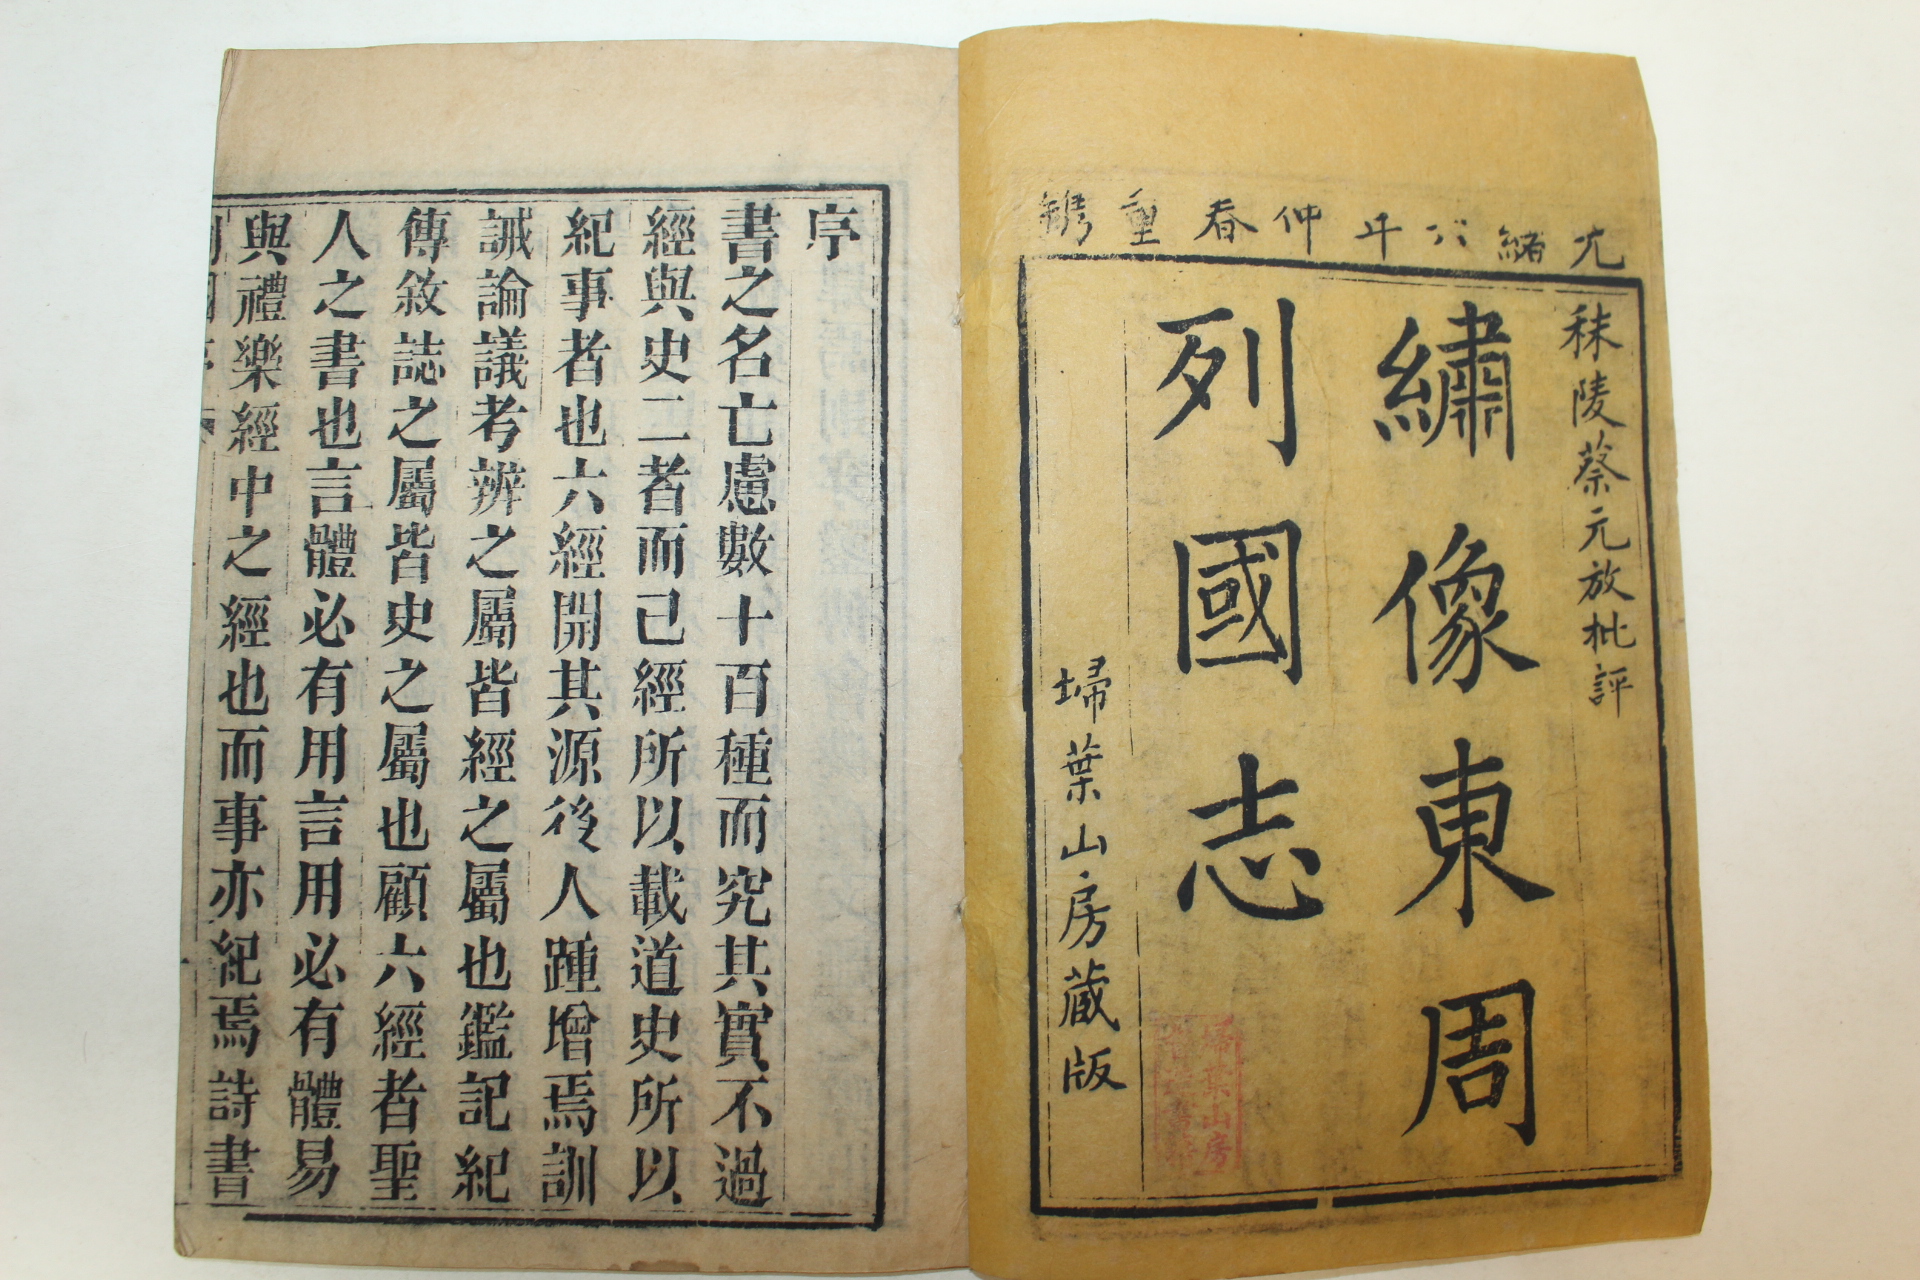 光緒六年仲春重鐫
秣陵蔡元放批評
繡像東周
列國志
埽葉山房藏版
埽葉山房
序
書之名亡慮數十百種而究其實不過
經與史二者而已經所以載道史所以
紀事者也六經開其源後人踵增焉訓
誡論議考辨之屬皆經之屬也鑑記紀
傳敘誌之屬皆史之屬也顧六經者聖
人之書也言體必有用言用必有體易
與禮樂經中之經也而事亦紀焉詩書